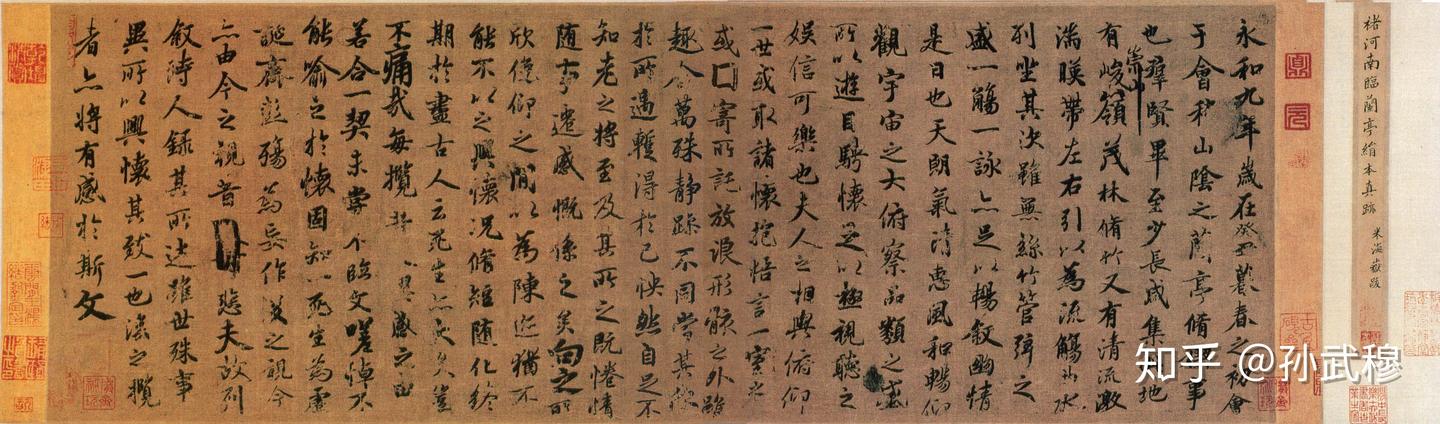 褚河南臨蘭亭絹本真跡 米海嶽跋
永和九年歲在癸丑暮春之初會
于會稽山陰之蘭亭脩禊事
也群賢畢至少長咸集此地
有崇山峻嶺茂林脩竹又有清流激
湍暎帶左右引以為流觴曲水
列坐其次雖無絲竹管弦之
盛一觴一詠亦足以暢敘幽情
是日也天朗氣清惠風和暢仰
觀宇宙之大俯察品類之盛
所以遊目騁懷足以極視聽之
娛信可樂也夫人之相與俯仰
一世或取諸懷抱悟言一室之內
或因寄所託放浪形骸之外雖
趣舍萬殊靜躁不同當其欣
於所遇暫得於己怏然自足不
知老之將至及其所之既惓情
隨事遷感慨係之矣向之所
欣俛仰之閒以為陳迹猶不
能不以之興懷況脩短隨化終
期於盡古人云死生亦大矣豈
不痛哉每攬昔人興感之由
若合一契未嘗不臨文嗟悼不
能喻之於懷固知一死生為虛
誕齊彭殤為妄作後之視今
亦由今之視昔悲夫故列
敘時人錄其所述雖世殊事
異所以興懷其致一也後之攬
者亦將有感於斯文
知乎 @孙武穆